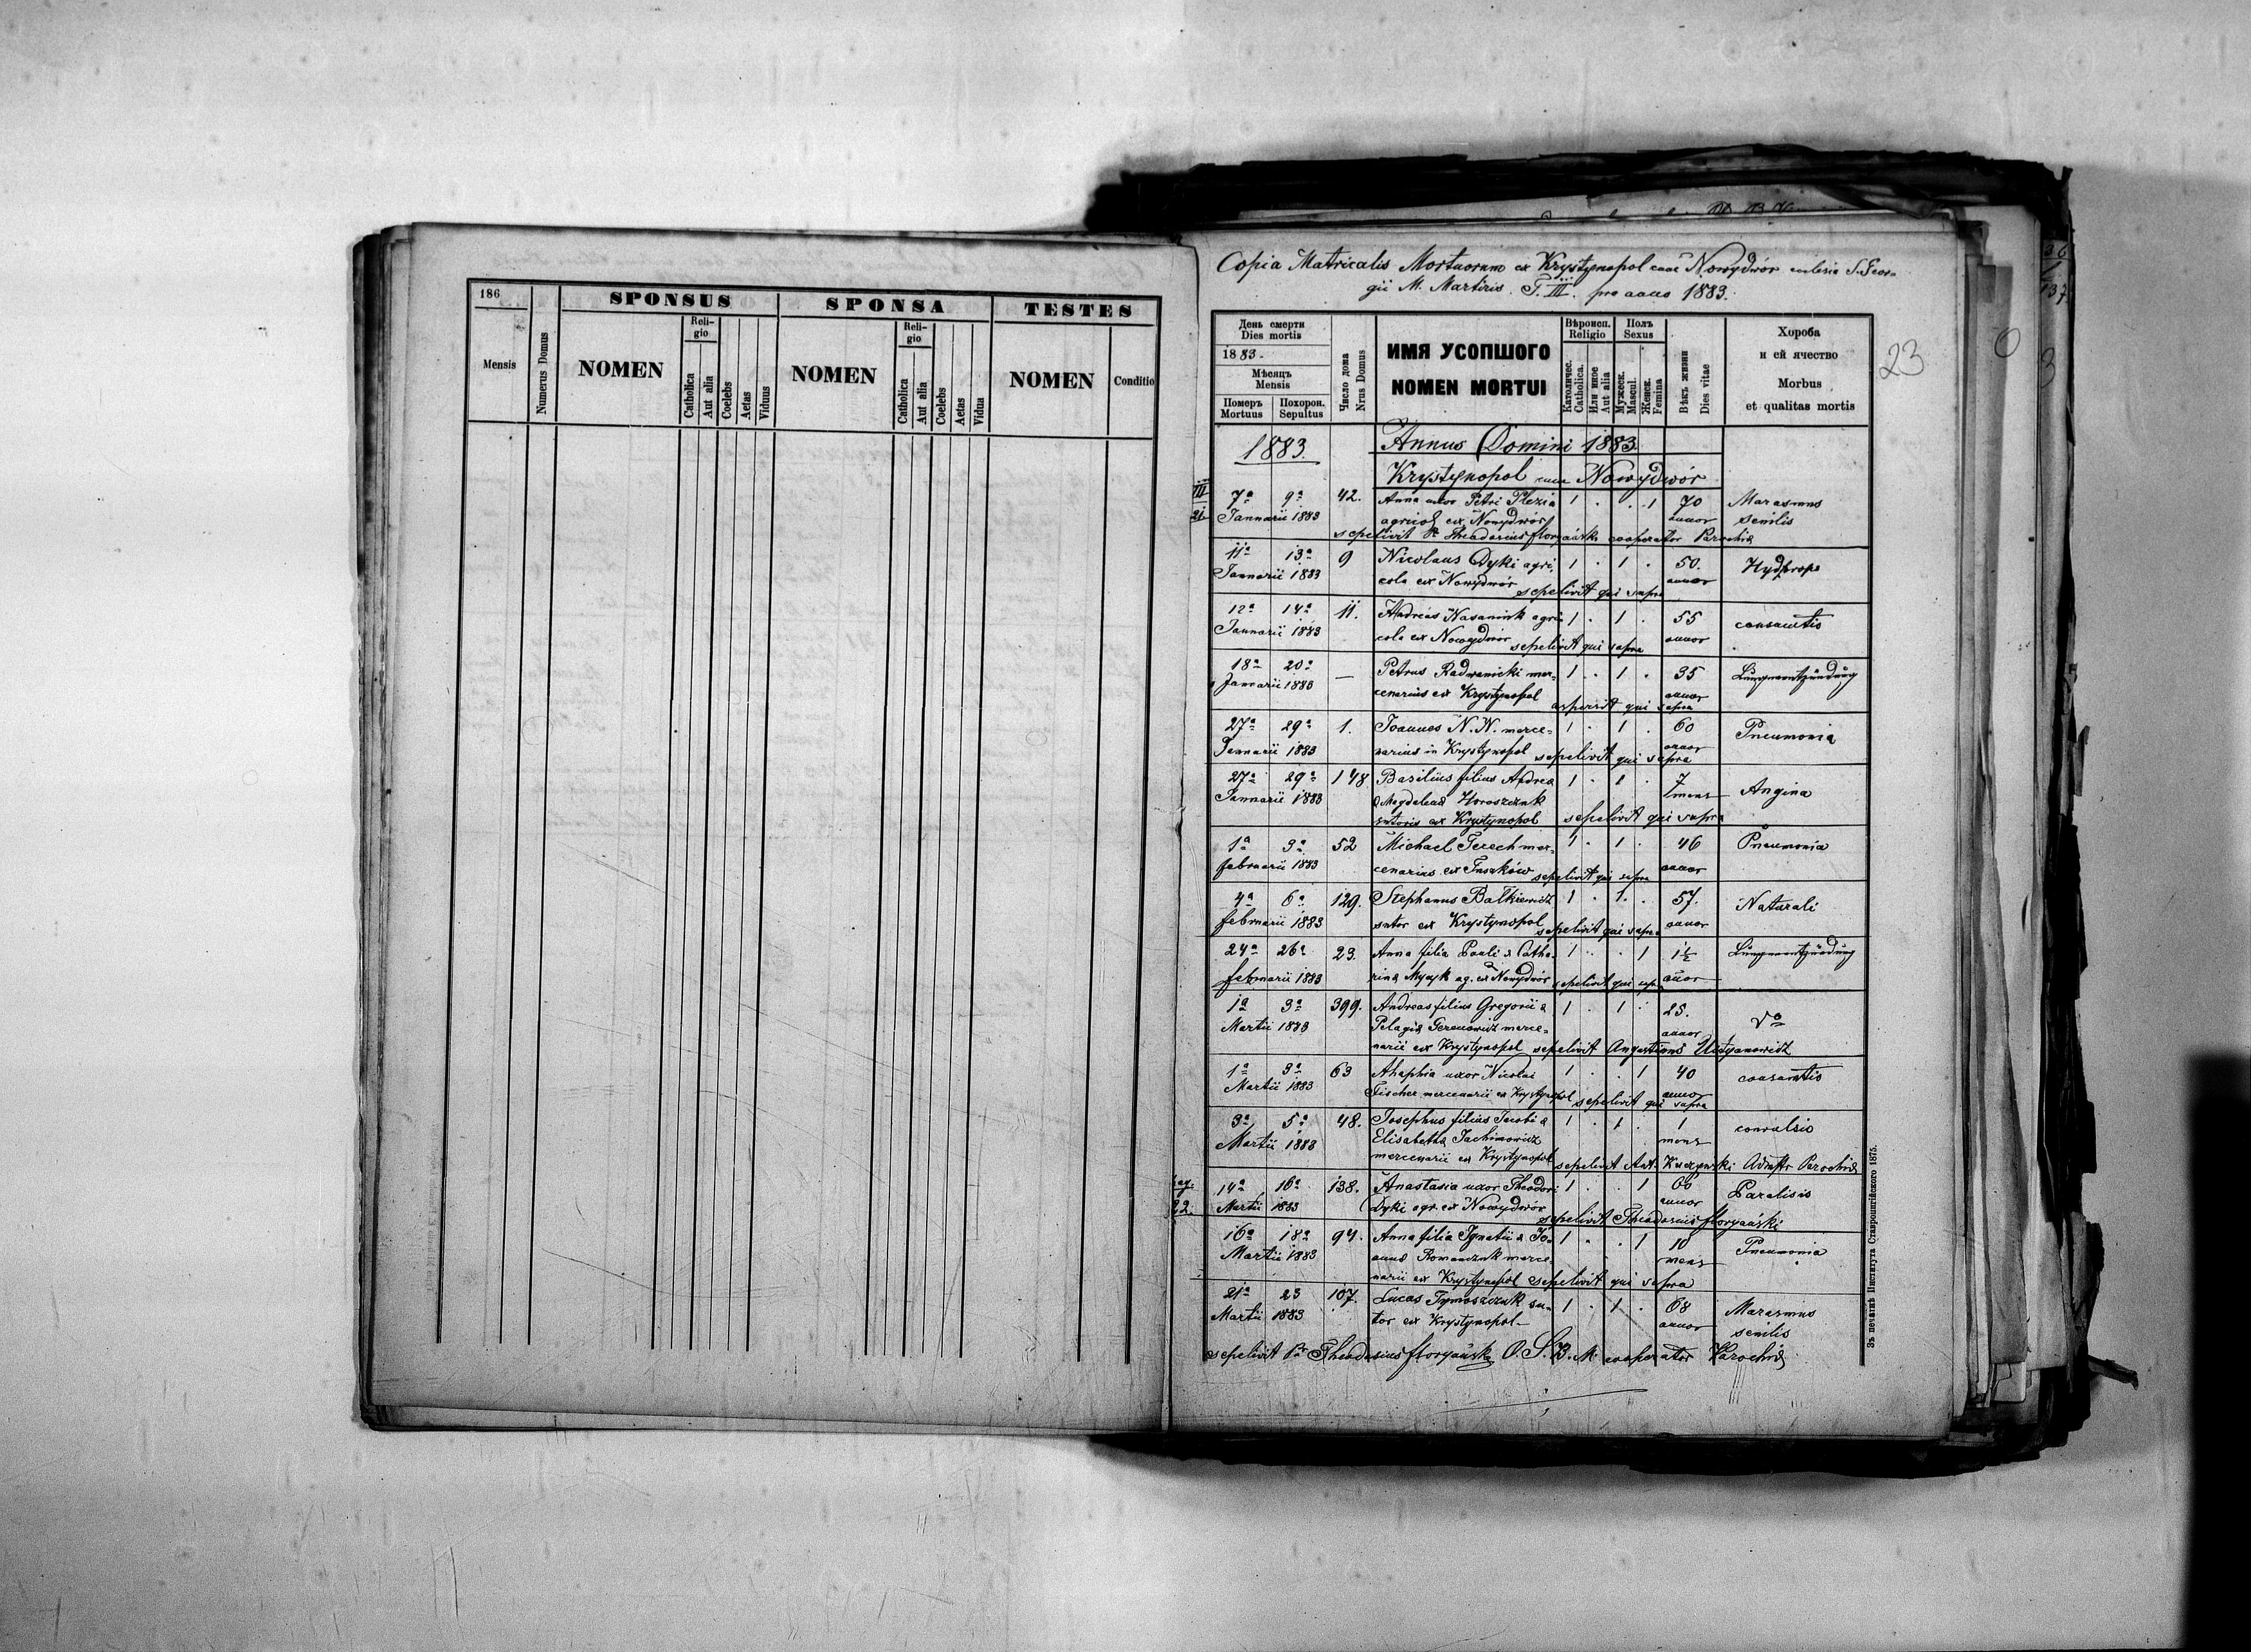 186
SPONSUS SPONSA TESTES
Mensis
Numerus Domus
NOMEN
Religio
Catholica
Aut alia
Coelebs
Aetas
Viduus
NOMEN
Religio
Catholica
Aut alia
Coelebs
Aetas
Vidua
NOMEN
Conditio
Copia Matricalis Mortuorum ex Krystynopol cum Nowydwór ecclesia S. Geor=
gii M. Martiris. T. III. pro anno 1883.
23
День смерти
Dies mortis
1883.
Мѣсяцъ
Mensis
Померъ
Mortuus
Похорон.
Sepultus
Число дома
Nrus Domus
ИМЯ УСОПШОГО
NOMEN MORTUI
Вѣроисп.
Religio
Католичес.
Catholica.
Или иное
Aut alia
Полъ
Sexus
Мужеск.
Mascul.
Женск.
Femina
Вѣкъ жизни
Dies vitae
Хороба
и ей ячество
Morbus
et qualitas mortis
1883. Annus Domini 1883.
Krystynopol cum Nowydwór
III
21
7a 9a 42. Anna uxor Petri Plezia 1 . . 1 70 Marasmus
Januarii 1883 agricol ex Nowydwór annor senilis
sepelivit Theodosius Floryański cooperator Parochiæ
11a 13a 9 Nicolaus Dyki agri= 1 . 1 . 50. Hydrops
Januarii 1883 cola ex Nowydwór sepelivit qui supra annor
12a 14a 11. Andreas agri= 1 . 1 . 55
Januarii 1883 cola ex Nowydwór sepelivit qui supra annor
18a 20a — Petrus Radwanicki mer= 1 . 1 . 35 Lungenentzündung
Januarii 1883 cenarius ex Krystynopol qui supra annor
27a 29a 1. Joannes N. N. merce= 1 . 1 . 60 Pneumonia
Januarii 1883 narius in Krystynopol sepelivit qui supra annor
27a 29a 148 Basilius filius Andrea 1 . 1 . 7 Angina
Januarii 1883 & Magdalena Horoszczuk mens
sutoris ex Krystynopol sepelivit qui supra
1a 3a 52 Michael Terech mer= 1 . 1 . 46 Pneumonia
februarii 1883 cenarius ex sepelivit qui supra annor
4a 6a 129. Stephanus Batkiewicz 1 . 1 . 57. Naturali
februarii 1883 sutor ex Krystynopol sepelivit qui supra annor
24a 26a 23. Anna filia Pauli & Catha= 1 . . 1 1½ Lungenentzündung
februarii 1883 rina ag. ex Nowydwór sepelivit qui supra annor
1a 3a 399. Andreas filius Gregorii & 1 . 1 . 25.
Martii 1883 Pelagia merce= annor
narii ex Krystynopol sepelivit Augustinus
1a 3a 63 Ahaphia uxor Nicolai 1 . . 1 40
Martii 1883 Fischer mercenarii ex Krystynopol sepelivit qui supra annor
3a 5a 48. Josephus filius Jacobi & 1 . 1 . 1 convulsio
Martii 1883 Elisabetha Jachimowicz mens
mercenarii ex Krystynopol sepelivit Ant. Parochiæ
pag.
22.
14a 16a 138. Anastasia uxor Theodori 1 . . 1 66 Paralisis
Martii 1883 Dyki agr. ex Nowydwór annor
sepelivit Theodosius Floryański
16a 18a 94. Anna filia Ignatii & Jo= 1 . . 1 10 Pneumonia
Martii 1883 anna Romanczuk merce= mens
narii ex Krystynopol sepelivit qui supra
21a 23 107. Lucas Tymoszczuk su= 1 . 1 . 68 Marasmus
Martii 1883 tor ex Krystynopol annor senilis
sepelivit Theodosius Floryański O. S. B. M. cooperator Parochiæ
Зъ печатнѣ Института Ставропигійского 1875.